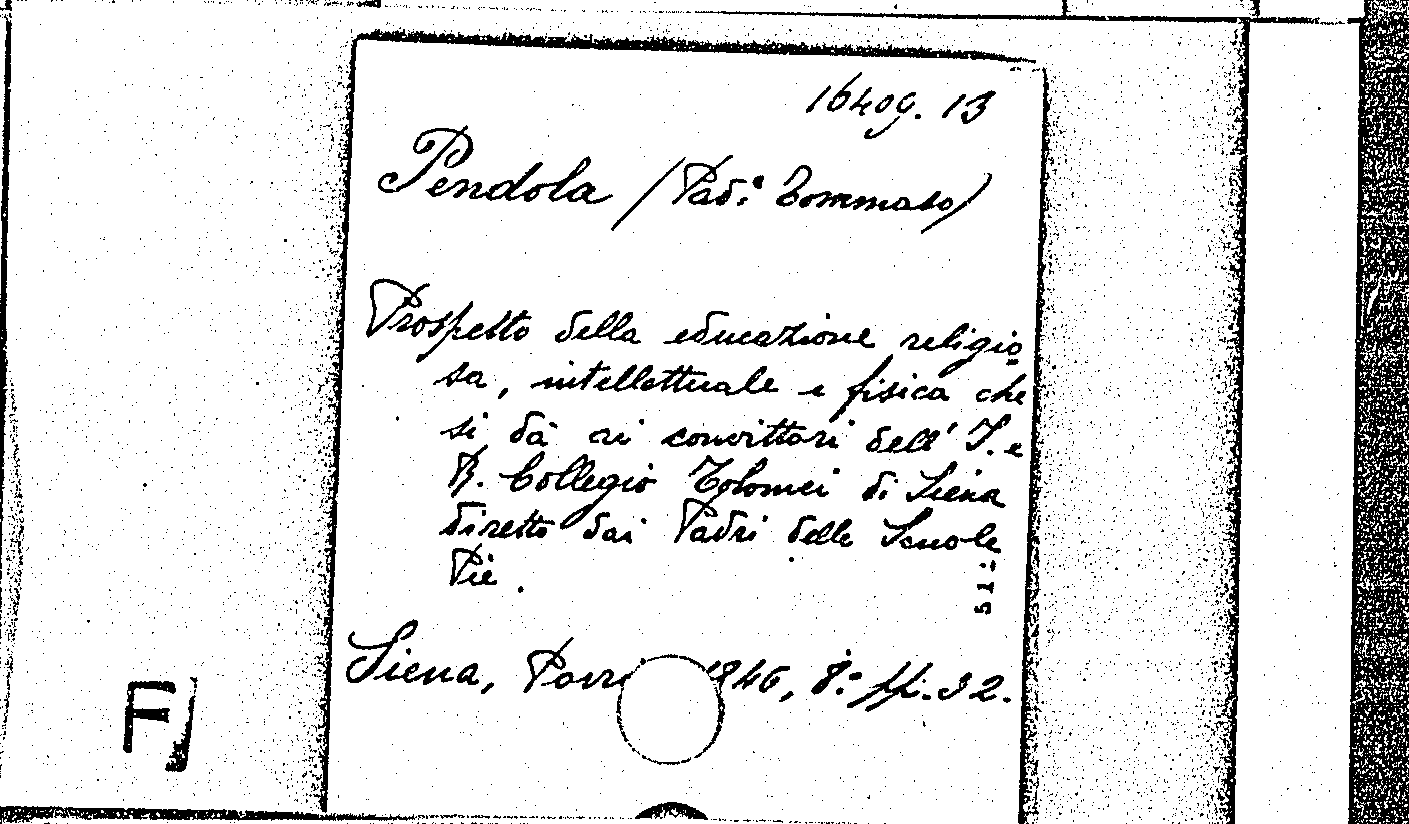 16409. 13
Pendola (Pad.e Tommaso)
Prospetto della educazione religio-
sa, intellettuale e fisica che
si dà ai convittori dell' I. e
R. Collegio Tolomei di Siena
diretto dai Padri delle Scuole
Pie.
51.
Siena, 1846, 8.° pp. 32.
FJ